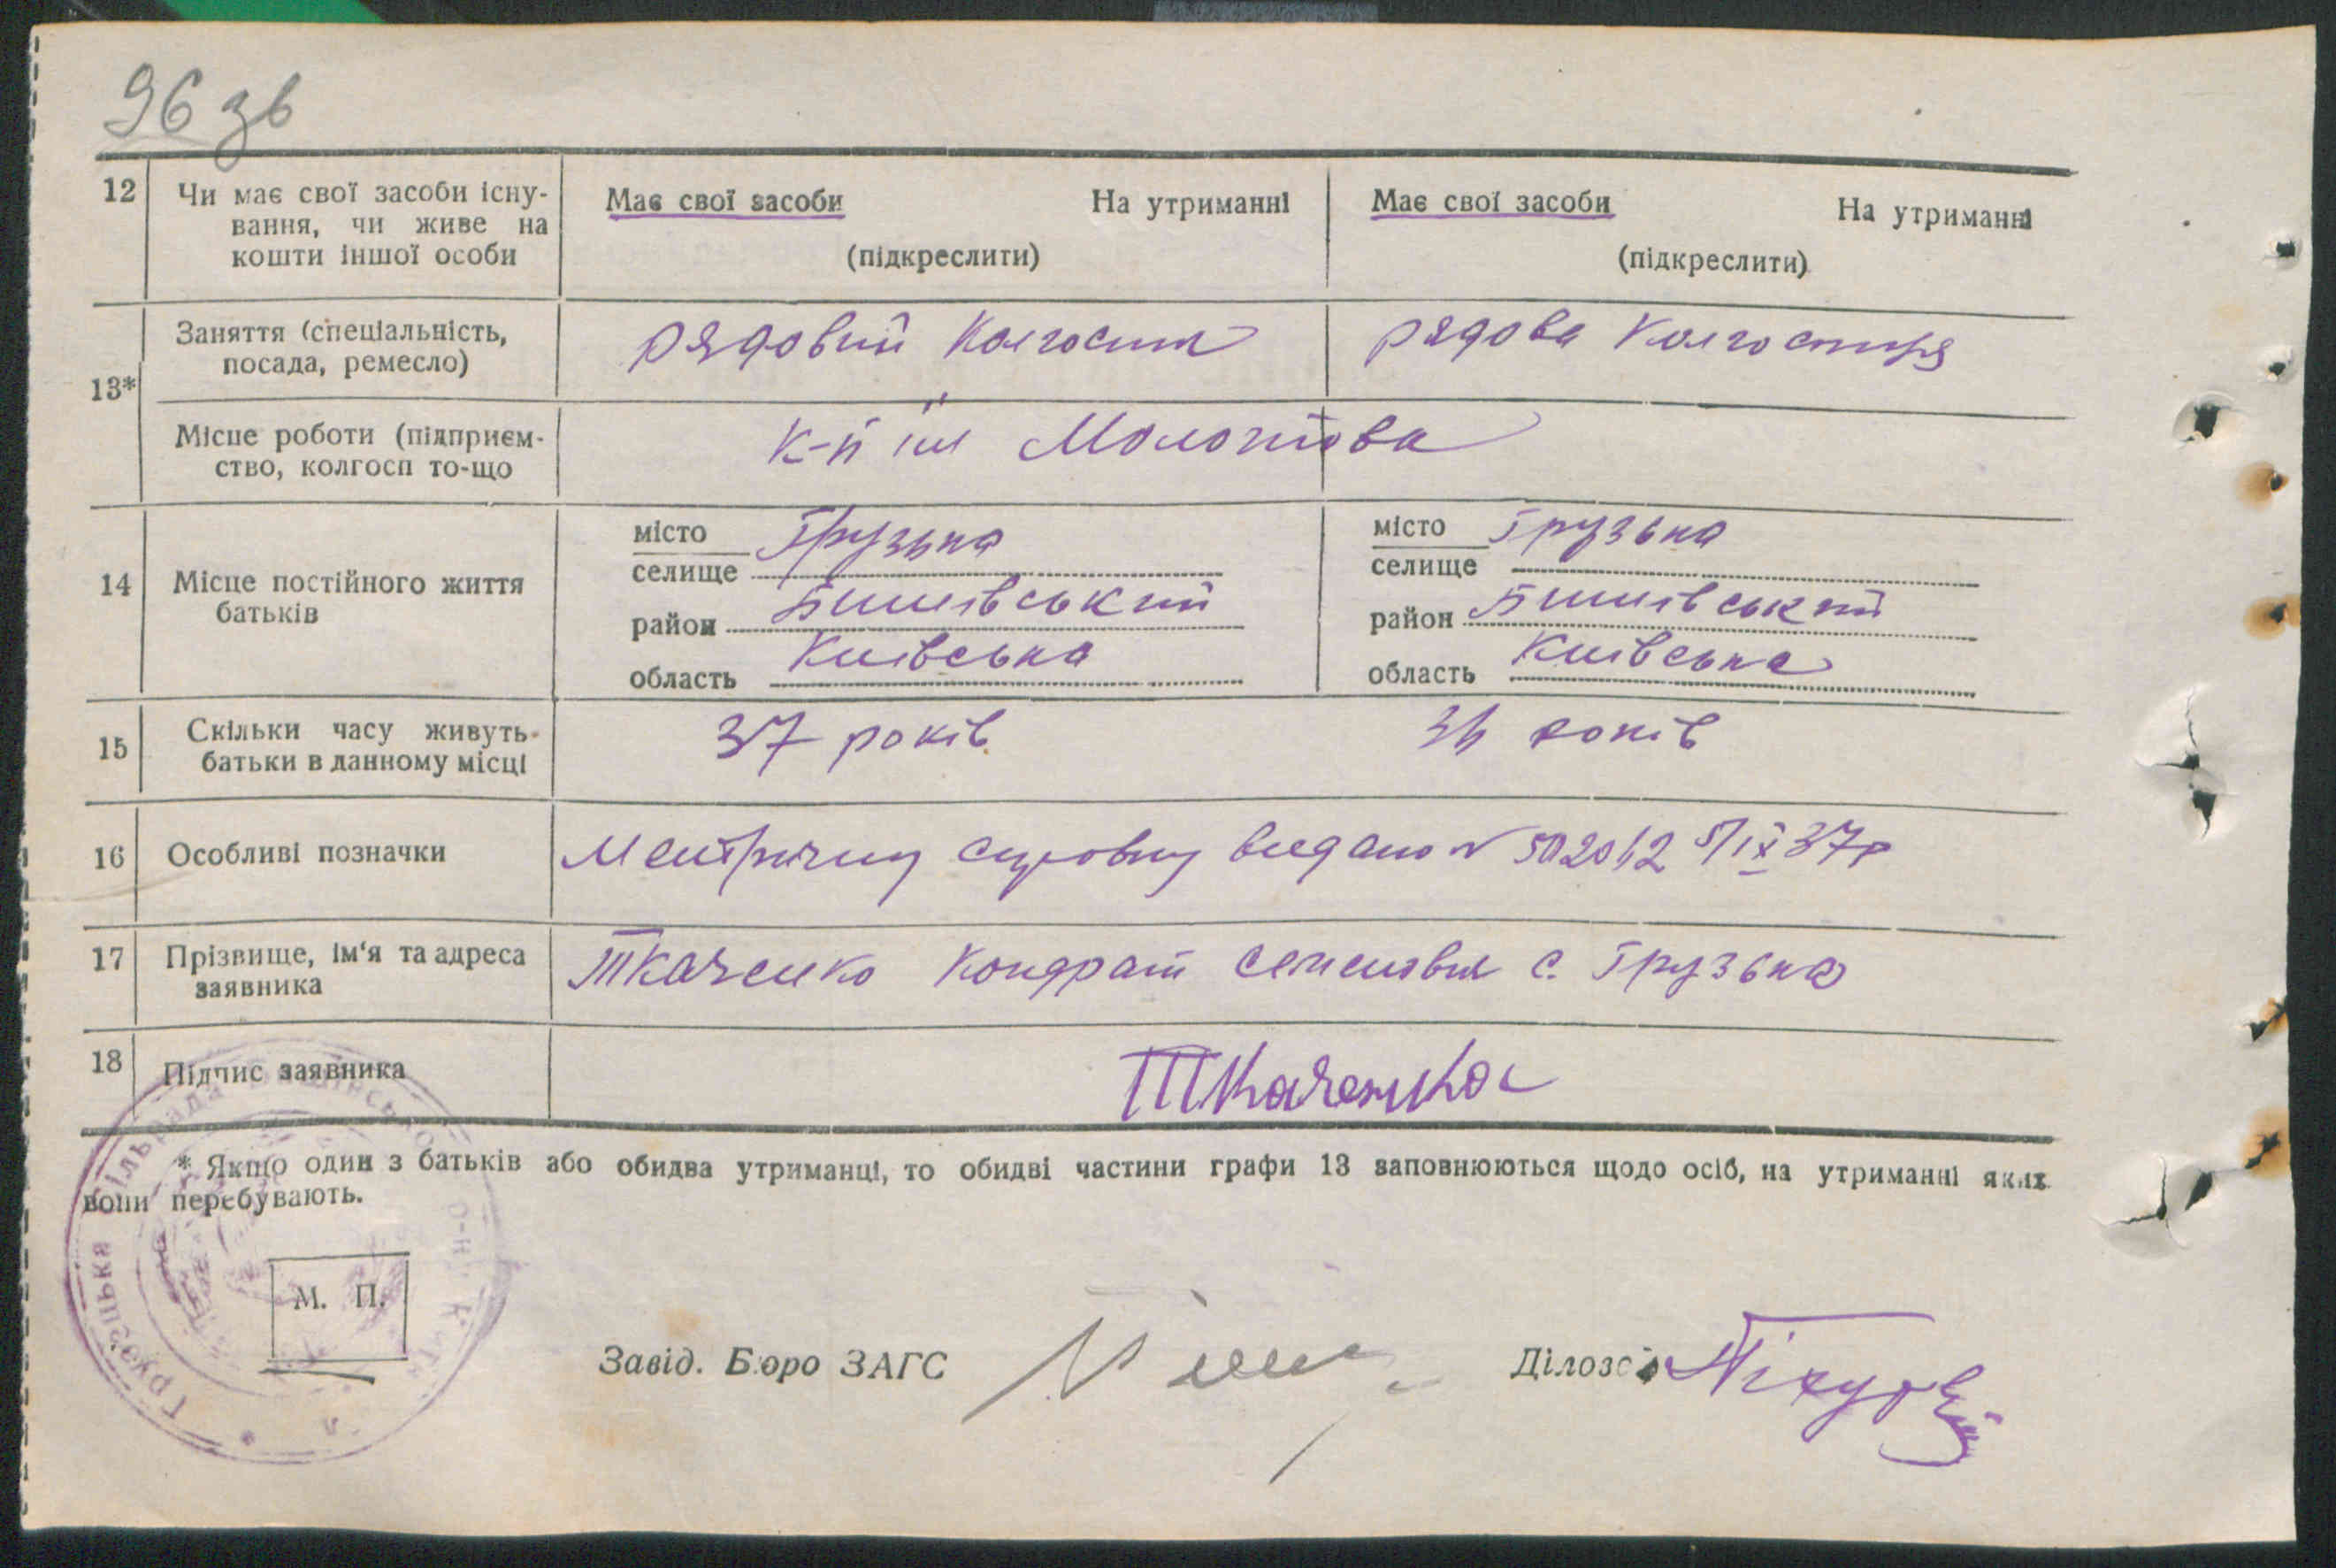 96 зв
12 Чи має свої засоби існу- Має свої засоби На утриманні Має свої засоби На утриманні
вання, чи живе на
кошти іншої особи (підкреслити) (підкреслити)
Заняття (спеціальність, рядовий рядова
посада, ремесло)
13*
Місце роботи (підприєм- к-п ім Молотова
ство, колгосп то-що
місто Грузька місто Грузька
селище селище
14 Місце постійного життя район район
батьків
область Київська область Київська
15 Скільки часу живуть 37 років років
батьки в данному місці
16 Особливі позначки видано №502012 5/IX 37р
17 Прізвище, ім‘я та адреса Ткаченко Кондрат с. Грузька
заявника
18 Підпис заявника Ткаченко
* Якщо один з батьків або обидва утриманці, то обидві частини графи 13 заповнюються щодо осіб, на утриманні яких
вони перебувають.
Грузцька сільрада
М. П.
Завід. Бюро ЗАГС Діловод